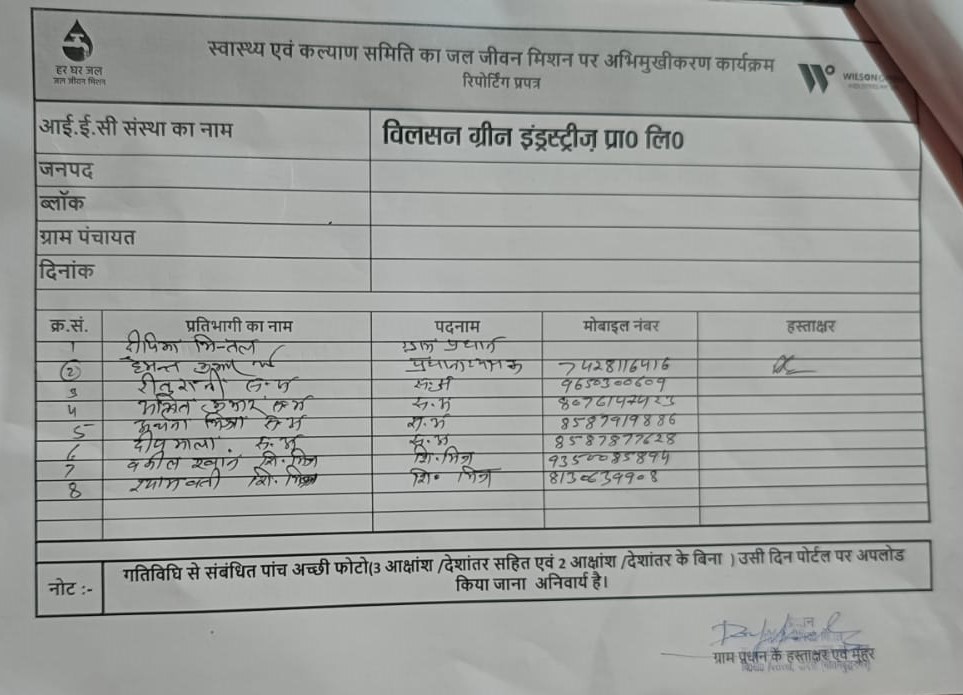 हर घर जल
जल जीवन मिशन
स्वास्थ्य एवं कल्याण समिति का जल जीवन मिशन पर अभिमुखीकरण कार्यक्रम
रिपोर्टिंग प्रपत्र
WILSON
आई.ई.सी संस्था का नाम विलसन ग्रीन इंड्रस्ट्रीज़ प्रा0 लि0
जनपद
ब्लॉक
ग्राम पंचायत
दिनांक
क्र.सं. प्रतिभागी का नाम पदनाम मोबाइल नंबर हस्ताक्षर
1 दीपिका प्रधान
2 हेमन्त कुमार प्रधानाध्यापक 7428116416
3 रीतु रानी स.अ स.अ 9650300609
4 कुमार स.अ स.अ
5 मिश्रा स.अ स.अ 8587919886
6 दीपमाला. स.अ स.अ 8587877628
7 वकील खान शि.मित्र शि.मित्र 9350085894
8 श्यामवती शि.मित्र शि. मित्र 8130639908
नोट :- गतिविधि से संबंधित पांच अच्छी फोटो(3 आक्षांश /देशांतर सहित एवं 2 आक्षांश /देशांतर के बिना ) उसी दिन पोर्टल पर अपलोड
किया जाना अनिवार्य है।
ग्राम प्रधान के हस्ताक्षर एवं मुहर